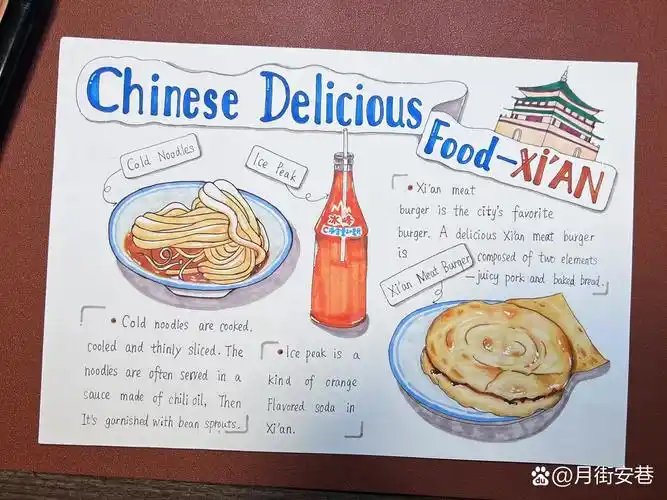 Chinese Delicious
Food-XI'AN
Cold Noodles
Ice Peak
冰峰
• Xi'an meat
burger is the city's favorite
burger. A delicious Xi'an meat burger
is composed of two elements
—juicy pork and baked bread.
Xi'an Meat Burger
• Cold noodles are cooked,
cooled and thinly sliced. The
noodles are often served in a
sauce made of chili oil, Then
It's garnished with bean sprouts.
• Ice peak is a
kind of orange
Flavored soda in
Xi'an.
Baidu @月街安巷